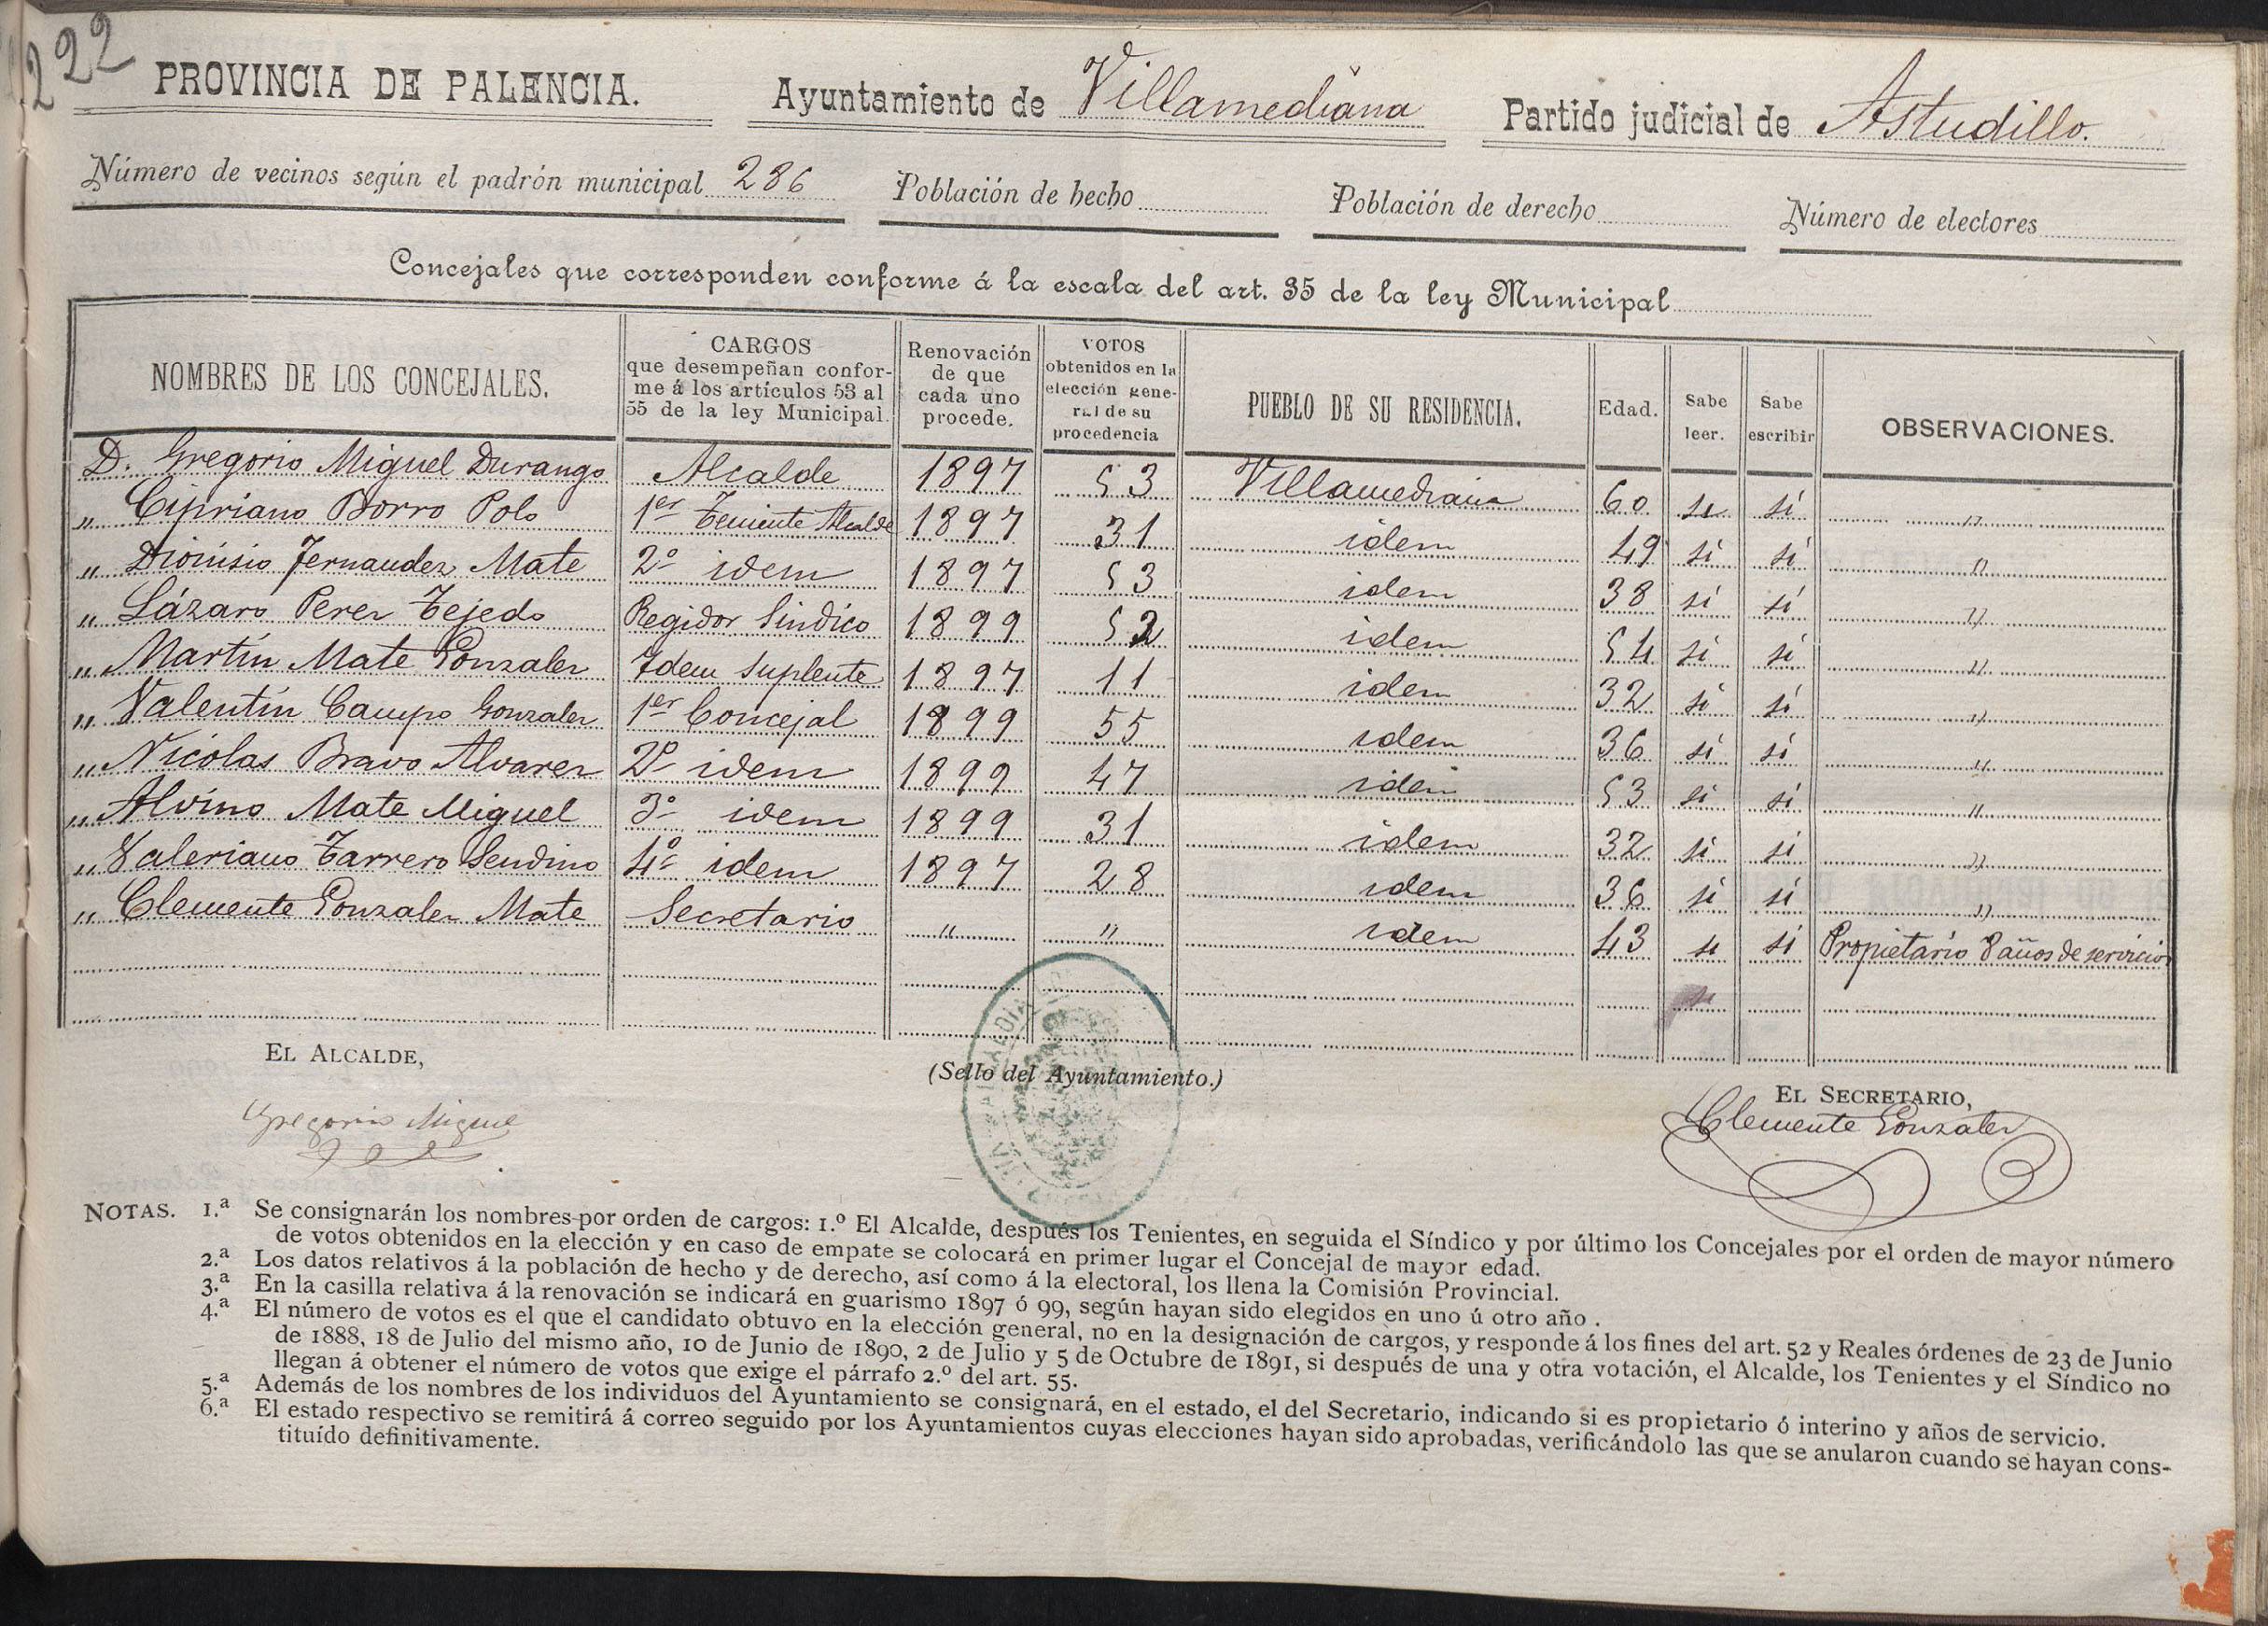 222
PROVINCIA DE PALENCIA. Ayuntamiento de Villamediana Partido judicial de Astudillo.
Número de vecinos según el padrón municipal 286 Población de hecho Población de derecho Número de electores
Concejales que corresponden conforme á la escala del art. 35 de la ley Municipal
NOMBRES DE LOS CONCEJALES. CARGOS que desempeñan conforme á los artículos 53 al 55 de la ley Municipal. Renovación de que cada uno procede. VOTOS obtenidos en la elección general de su procedencia PUEBLO DE SU RESIDENCIA. Edad. Sabe leer. Sabe escribir OBSERVACIONES.
D. Gregorio Miguel Durango Alcalde 1897 53 Villamediana 60 si si "
" Cipriano Borro Polo 1er Teniente Alcalde 1897 31 idem 49 si si "
" Dionisio Fernandez Mate 2º idem 1897 53 idem 38 si si "
" Lázaro Perez Tejedo Regidor Sindico 1899 52 idem 54 si si "
" Martín Mate Gonzalez Idem Suplente 1897 11 idem 32 si si "
" Valentín Campo Gonzalez 1er Concejal 1899 55 idem 36 si si "
" Nicolas Bravo Alvarez 2º idem 1899 47 idem 53 si si "
" Alvino Mate Miguel 3º idem 1899 31 idem 32 si si "
" Valeriano Tarrero Sendino 4º idem 1897 28 idem 36 si si "
" Clemente Gonzalez Mate Secretario " " idem 43 si si Propietario 8 años de servicios
si
EL ALCALDE, (Sello del Ayuntamiento.) EL SECRETARIO,
Gregorio Miguel Clemente Gonzalez
NOTAS. 1.ª Se consignarán los nombres por orden de cargos: 1.º El Alcalde, después los Tenientes, en seguida el Síndico y por último los Concejales por el orden de mayor número
de votos obtenidos en la elección y en caso de empate se colocará en primer lugar el Concejal de mayor edad.
2.ª Los datos relativos á la población de hecho y de derecho, así como á la electoral, los llena la Comisión Provincial.
3.ª En la casilla relativa á la renovación se indicará en guarismo 1897 ó 99, según hayan sido elegidos en uno ú otro año.
4.ª El número de votos es el que el candidato obtuvo en la elección general, no en la designación de cargos, y responde á los fines del art. 52 y Reales órdenes de 23 de Junio
de 1888, 18 de Julio del mismo año, 10 de Junio de 1890, 2 de Julio y 5 de Octubre de 1891, si después de una y otra votación, el Alcalde, los Tenientes y el Síndico no
llegan á obtener el número de votos que exige el párrafo 2.º del art. 55.
5.ª Además de los nombres de los individuos del Ayuntamiento se consignará, en el estado, el del Secretario, indicando si es propietario ó interino y años de servicio.
6.ª El estado respectivo se remitirá á correo seguido por los Ayuntamientos cuyas elecciones hayan sido aprobadas, verificándolo las que se anularon cuando se hayan cons-
tituído definitivamente.